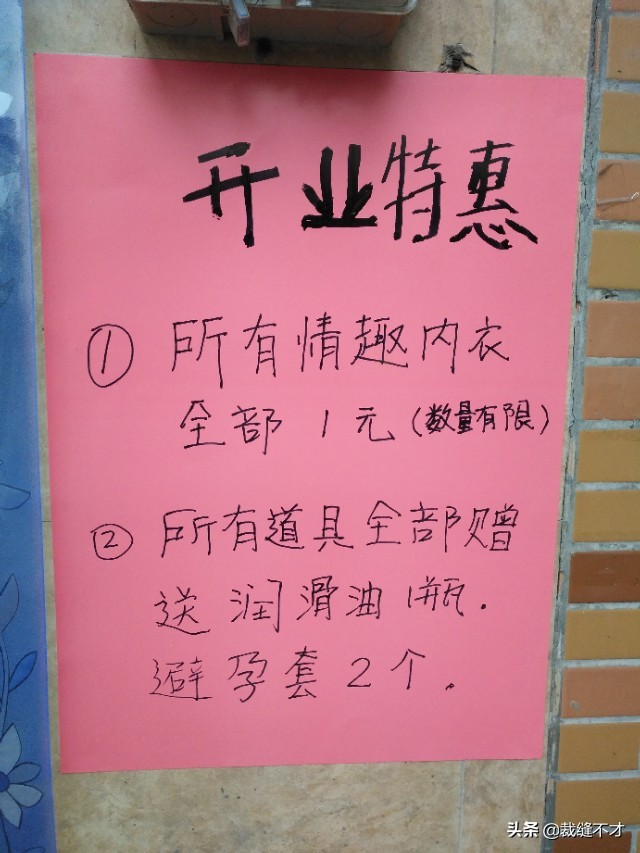 开业特惠
① 所有情趣内衣
全部1元(数量有限)
② 所有道具全部赠
送润滑油1瓶.
避孕套2个.
头条 @裁缝不才